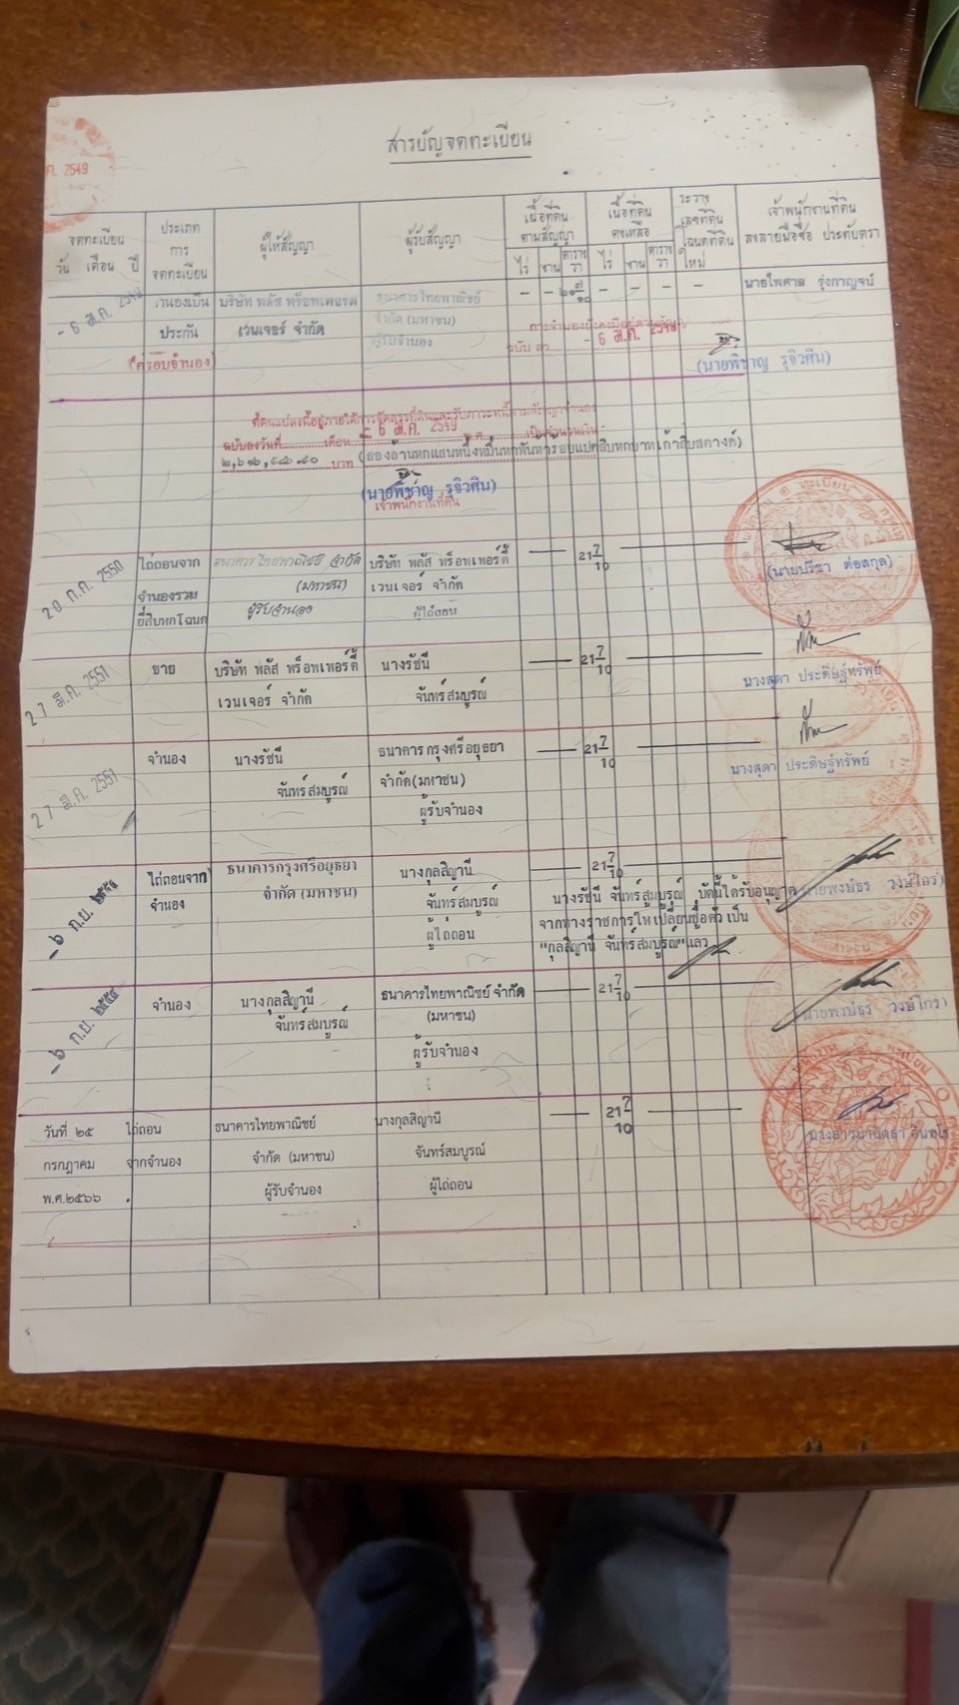 สารบัญจดทะเบียน
ค. 2549
จดทะเบียน
วัน เดือน ปี
ประเภท
การ
จดทะเบียน
ผู้ให้สัญญา
ผู้รับสัญญา
เนื้อที่ดิน
ตามสัญญา
ไร่ งาน ตารางวา
เนื้อที่ดิน
คงเหลือ
ไร่ งาน ตารางวา
ระวาง
เลขที่ดิน
โฉนดที่ดิน
ใหม่
เจ้าพนักงานที่ดิน
ลงลายมือชื่อ ประทับตรา
- 6 ส.ค. 2549
ประกัน
(ครอบจำนอง)
บริษัท พลัส พร็อพเพอร์ตี้
เวนเจอร์ จำกัด
ธนาคารไทยพาณิชย์
จำกัด (มหาชน)
ผู้รับจำนอง
- - ๒๑ ๗/๑๐ - - - -
นายไพศาล รุ่งกาญจน์
- 6 ส.ค. 2549
(นายพิชาญ รุจิวศิน)
- 6 ส.ค. 2549
บาท
(นายพิชาญ รุจิวศิน)
เจ้าพนักงานที่ดิน
20 ก.ค. 2550
ไถ่ถอนจาก
จำนองรวม
ยี่สิบหกโฉนด
ธนาคารไทยพาณิชย์ จำกัด
(มหาชน)
ผู้รับจำนอง
บริษัท พลัส พร็อพเพอร์ตี้
เวนเจอร์ จำกัด
ผู้ไถ่ถอน
21 7/10
(นายปรีชา ต่อสกุล)
27 มี.ค. 2551
ขาย
บริษัท พลัส พร็อพเพอร์ตี้
เวนเจอร์ จำกัด
นางรัชนี
จันทร์สมบูรณ์
21 7/10
นางสุดา ประดิษฐ์ทรัพย์
27 มี.ค. 2551
จำนอง
นางรัชนี
จันทร์สมบูรณ์
ธนาคารกรุงศรีอยุธยา
จำกัด(มหาชน)
ผู้รับจำนอง
21 7/10
นางสุดา ประดิษฐ์ทรัพย์
-๖ ก.ย. ๒๕๕๔
ไถ่ถอนจาก
จำนอง
ธนาคารกรุงศรีอยุธยา
จำกัด (มหาชน)
นางกุลสิญานี
จันทร์สมบูรณ์
ผู้ไถ่ถอน
21 7/10
นางรัชนี จันทร์สมบูรณ์ บัดนี้ได้รับอนุญาต
จากทางราชการให้เปลี่ยนชื่อตัวเป็น
"กุลสิญานี จันทร์สมบูรณ์"แล้ว
นายพงษ์ธร วงษ์ไกร)
-๖ ก.ย. ๒๕๕๔
จำนอง
นางกุลสิญานี
จันทร์สมบูรณ์
ธนาคารไทยพาณิชย์ จำกัด
(มหาชน)
ผู้รับจำนอง
21 7/10
นายพงษ์ธร วงษ์ไกร)
วันที่ ๒๕
กรกฎาคม
พ.ศ.๒๕๖๖
ไถ่ถอน
จากจำนอง
ธนาคารไทยพาณิชย์
จำกัด (มหาชน)
ผู้รับจำนอง
นางกุลสิญานี
จันทร์สมบูรณ์
ผู้ไถ่ถอน
21 7/10